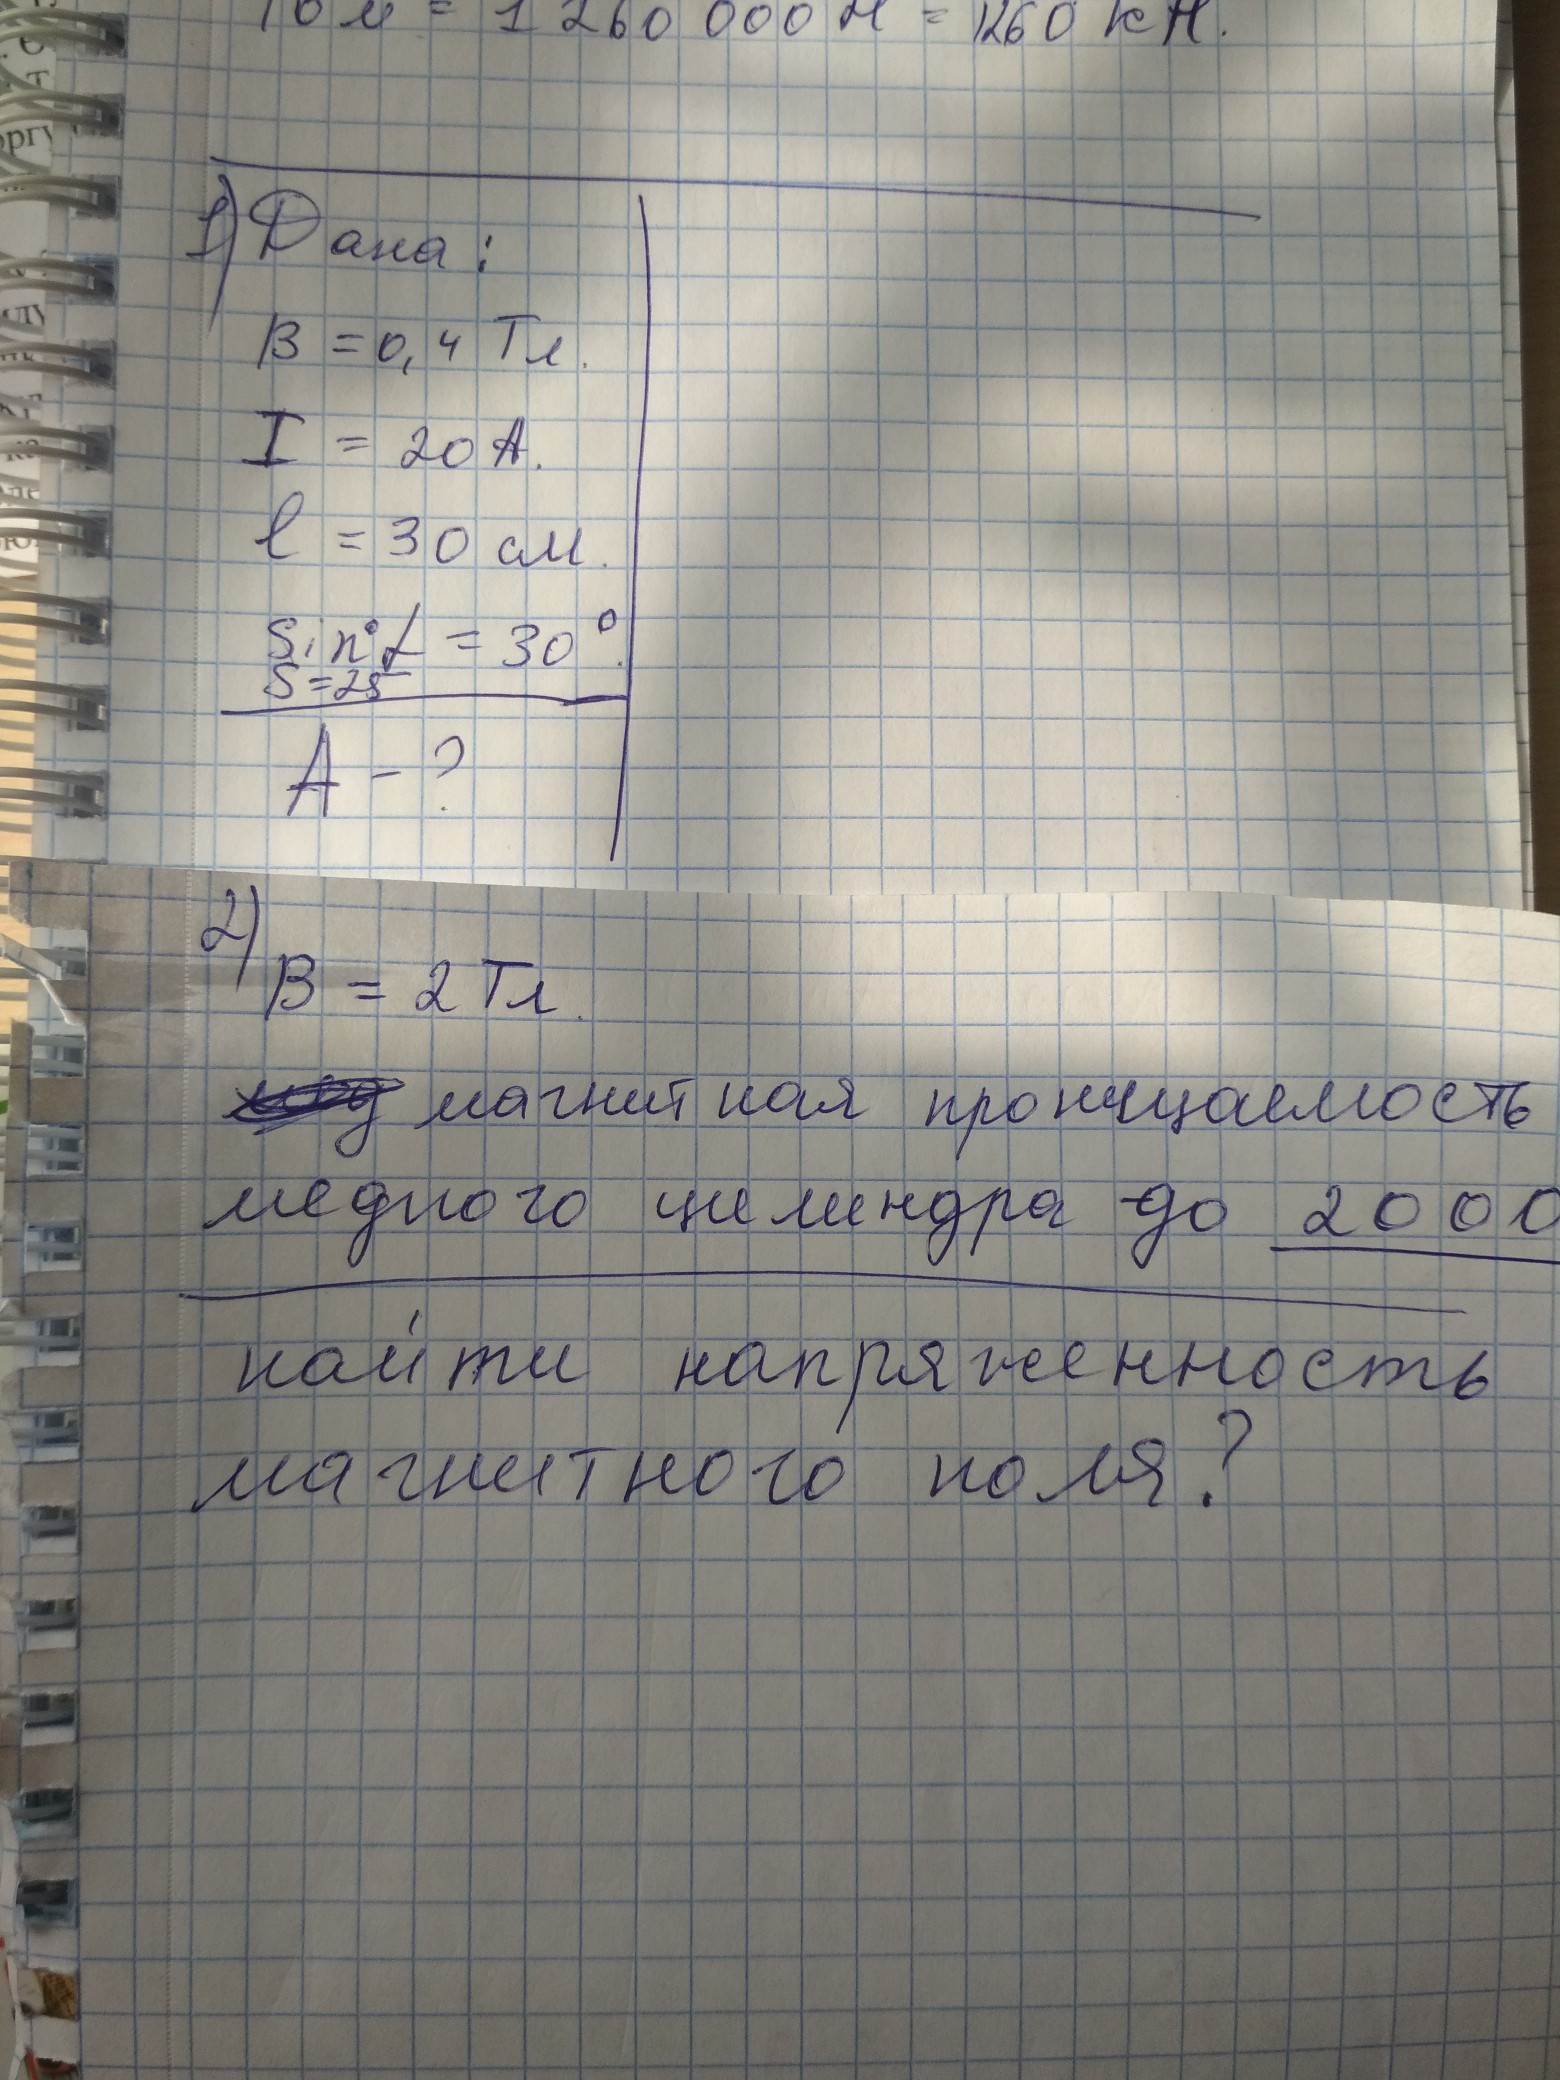 10 м = 1 260 000 Н = 1260 кН.
1) Дана:
B = 0,4 Тл.
I = 20 А.
l = 30 см.
Sin° α = 30°.
S = 25
А - ?
2)
B = 2 Тл.
магнитная проницаемость
медного цилиндра до 2000
найти напряженность
магнитного поля?